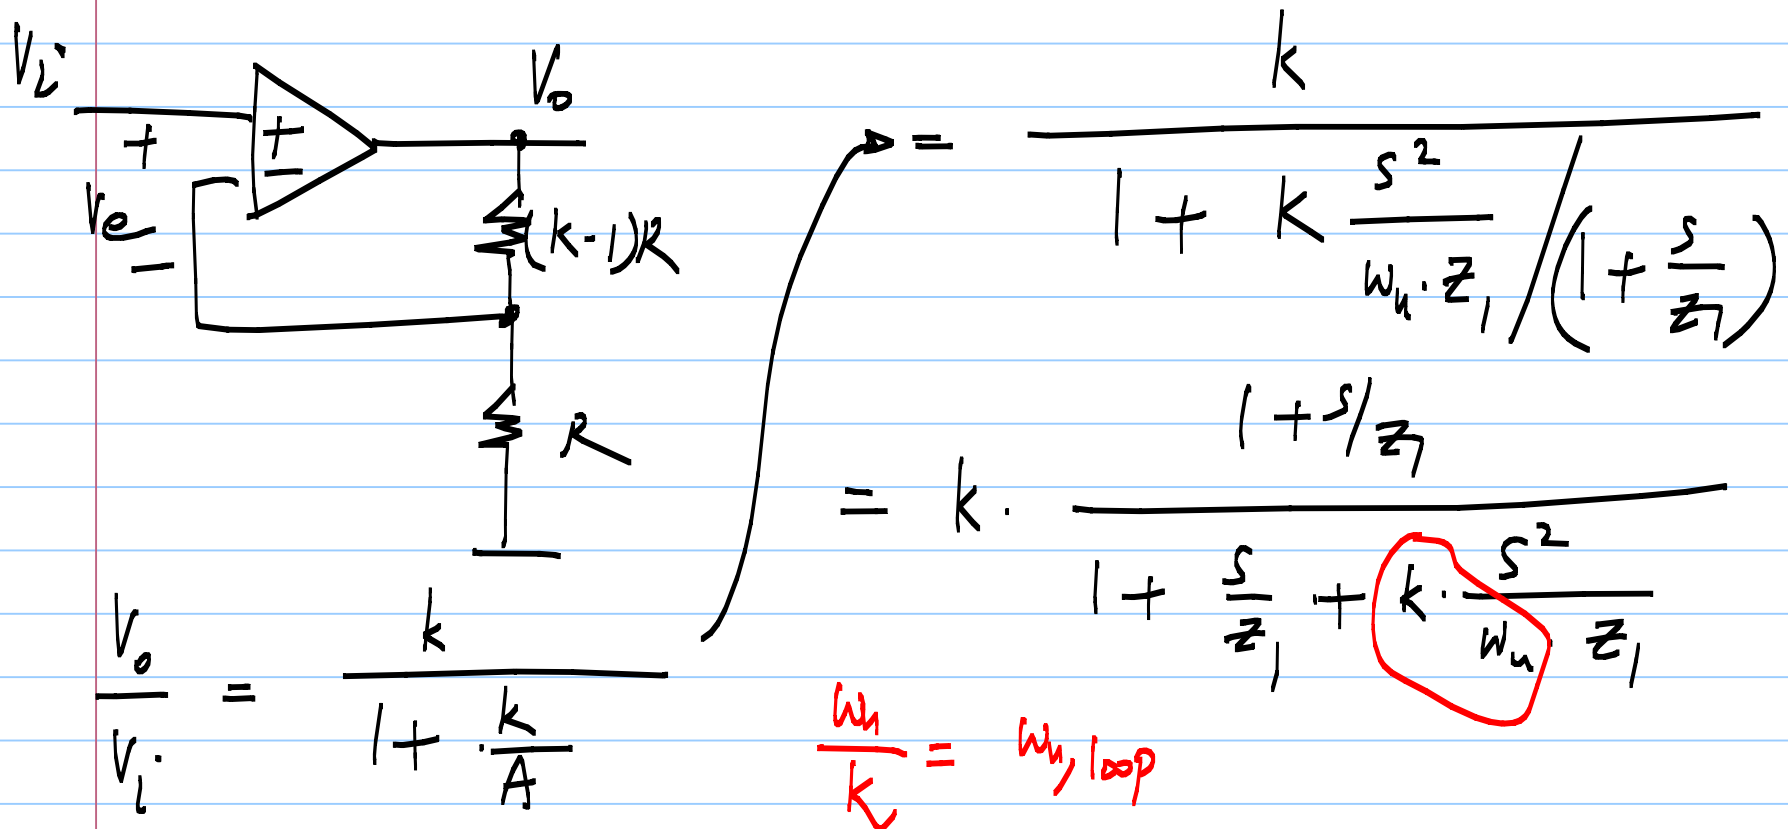 Vi
+
Ve
−
+
−
Vo
(k-1)R
R
Vo/Vi = k/(1 + k/A)
= k/(1 + k s²/(ωu·z1)/(1 + s/z1))
= k · (1 + s/z1)/(1 + s/z1 + k · s²/(ωu z1))
ωu/k = ωu,loop